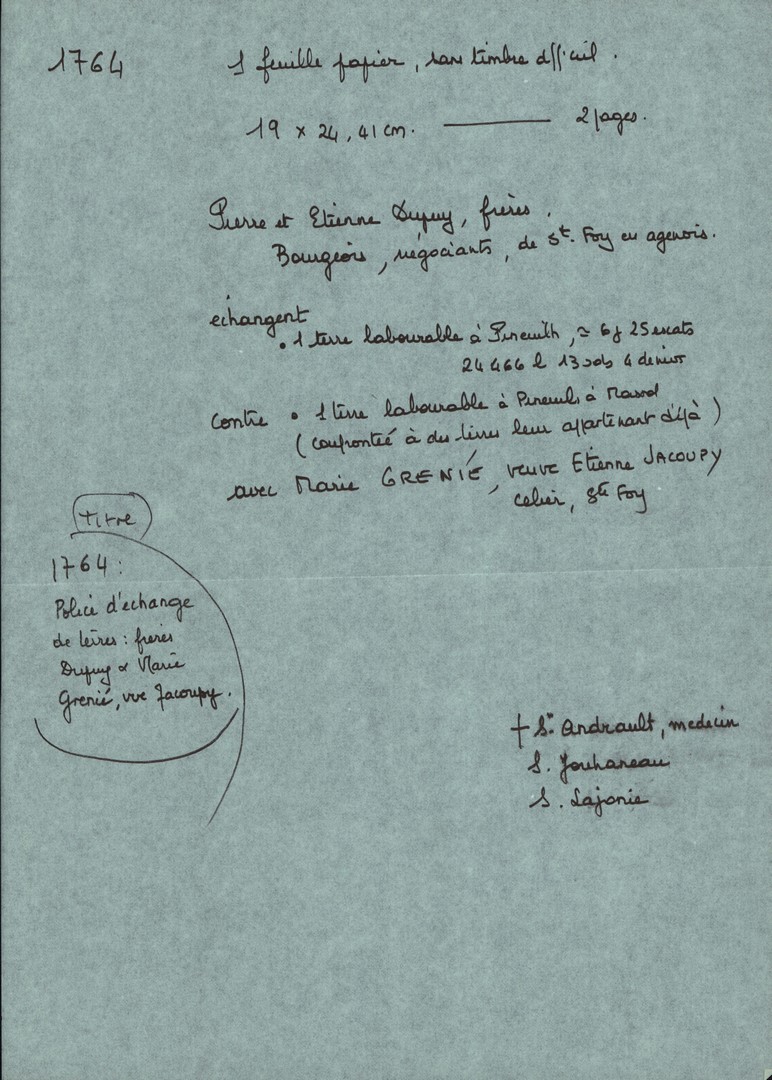 1764
1 feuille papier, sans timbre off'ciel.
19 x 24,41 cm. — 2 pages.
Pierre et Etienne Dupuy, frères.
Bourgeois, négociants, de St. Foy en agenois.
echangent
• 1 terre labourable à Pineuilh, ≃ 6j 25 escats
24 466 l 13 sols 4 deniers
contre • 1 terre labourable à Pineuilh à
(confrontée à des terres leur appartenant déjà)
avec Marie GRENIÉ, veuve Etienne JACOUPY
celier, Ste Foy
titre
1764 :
Police d'echange
de terres : freres
Dupuy & Marie
Grenié, vve Jacoupy.
+ Sr. Andrault, medecin
S. Jouhaneau
S. Lajonie